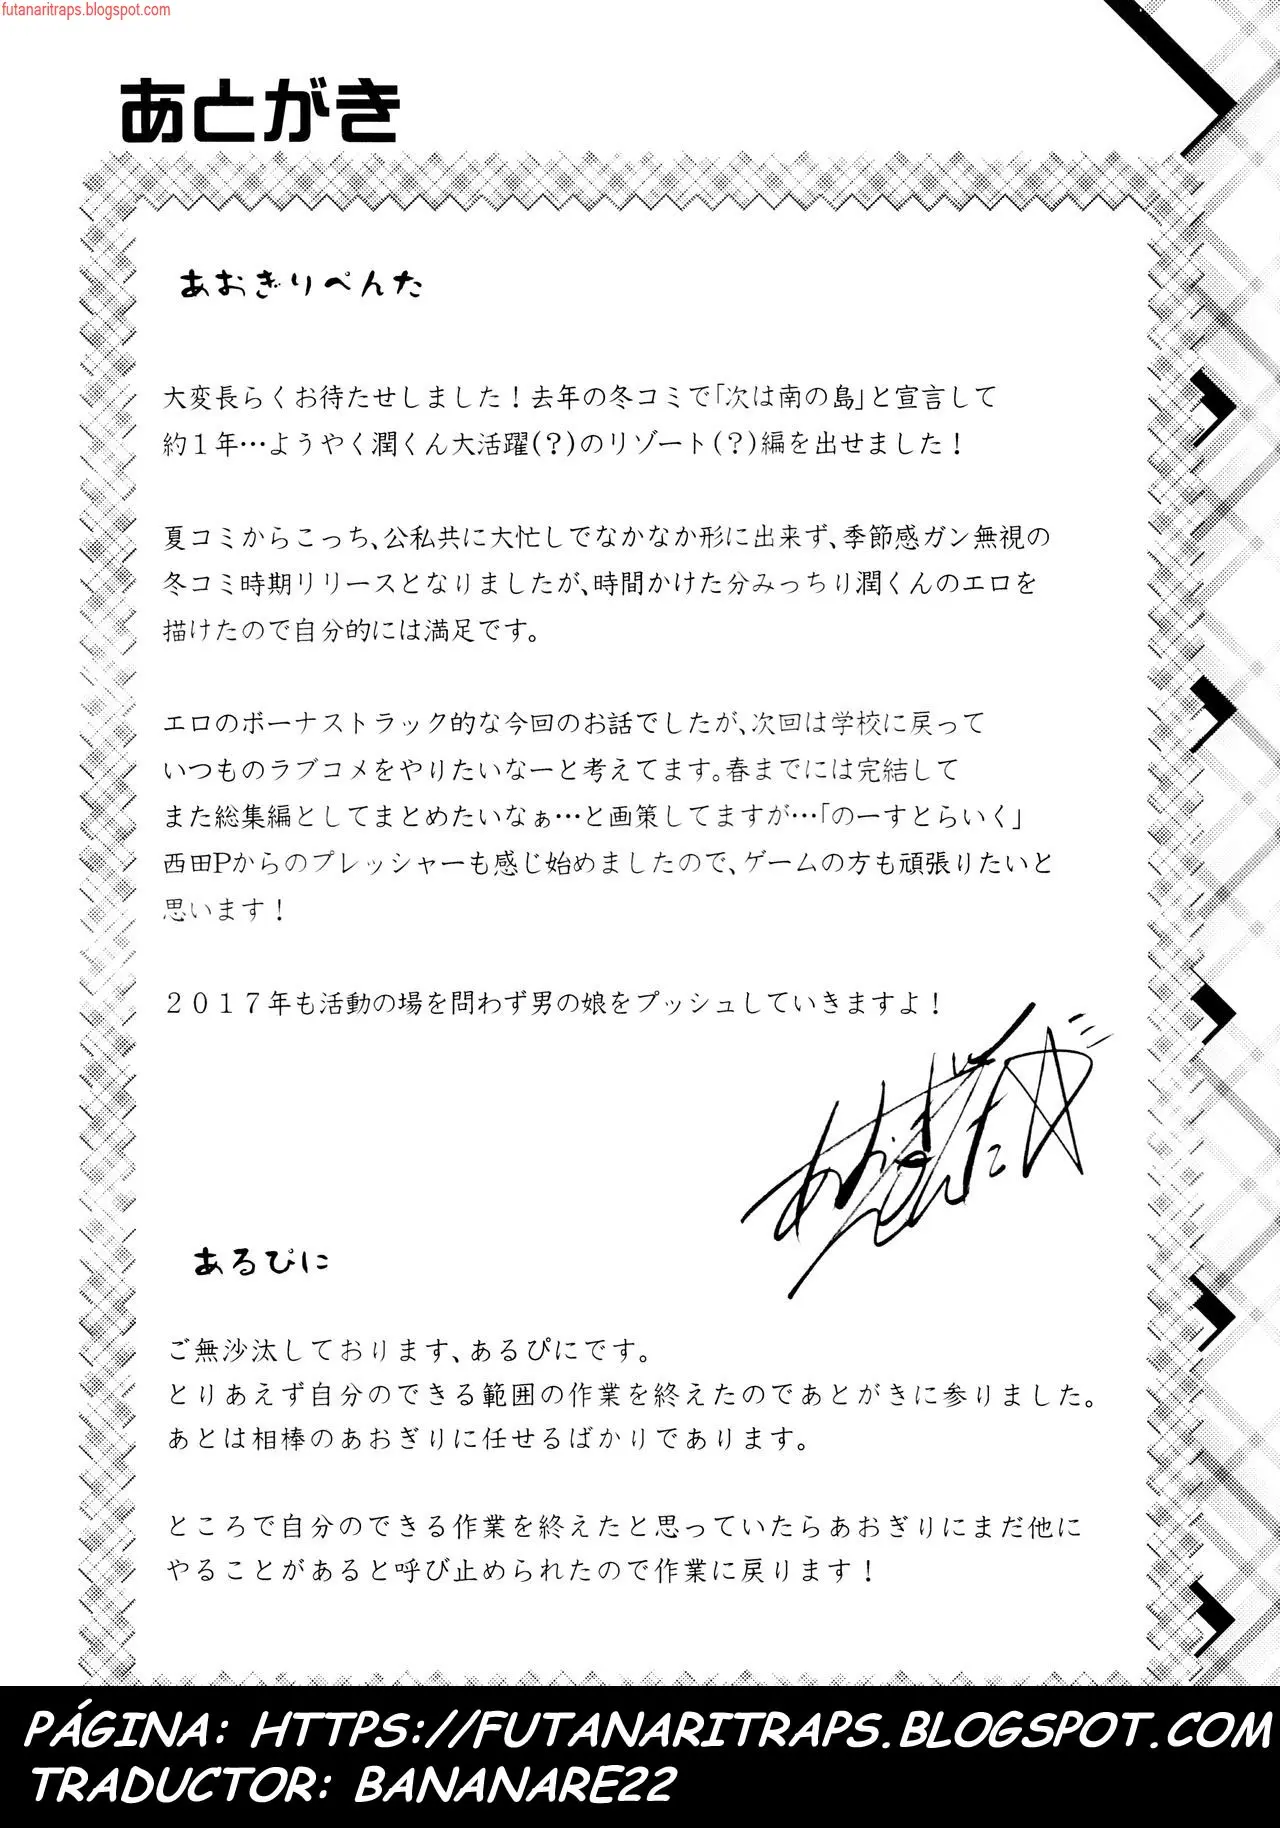 futanaritraps.blogspot.com
あとがき
あおぎりぺんた
大変長らくお待たせしました！去年の冬コミで「次は南の島」と宣言して
約１年…ようやく潤くん大活躍(？)のリゾート(？)編を出せました！
夏コミからこっち、公私共に大忙しでなかなか形に出来ず、季節感ガン無視の
冬コミ時期リリースとなりましたが、時間かけた分みっちり潤くんのエロを
描けたので自分的には満足です。
エロのボーナストラック的な今回のお話でしたが、次回は学校に戻って
いつものラブコメをやりたいなーと考えてます。春までには完結して
また総集編としてまとめたいなぁ…と画策してますが…「のーすとらいく」
西田Pからのプレッシャーも感じ始めましたので、ゲームの方も頑張りたいと
思います！
２０１７年も活動の場を問わず男の娘をプッシュしていきますよ！
あおぎりぺんた
あるぴに
ご無沙汰しております、あるぴにです。
とりあえず自分のできる範囲の作業を終えたのであとがきに参りました。
あとは相棒のあおぎりに任せるばかりであります。
ところで自分のできる作業を終えたと思っていたらあおぎりにまだ他に
やることがあると呼び止められたので作業に戻ります！
PÁGINA: HTTPS://FUTANARITRAPS.BLOGSPOT.COM
TRADUCTOR: BANANARE22